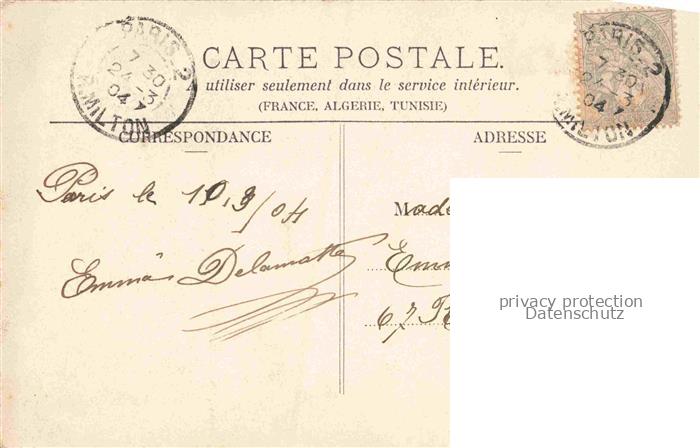 PARIS_2
7 30
24 -3
04
R.MILTON
CARTE POSTALE.
A utiliser seulement dans le service intérieur.
(FRANCE, ALGERIE, TUNISIE)
PARIS_2
7 30
24 -3
04
R.MILTON
CORRESPONDANCE
ADRESSE
Paris le 10/3/04
Emma Delamatte
Made
Emm
67 R
privacy protection
Datenschutz